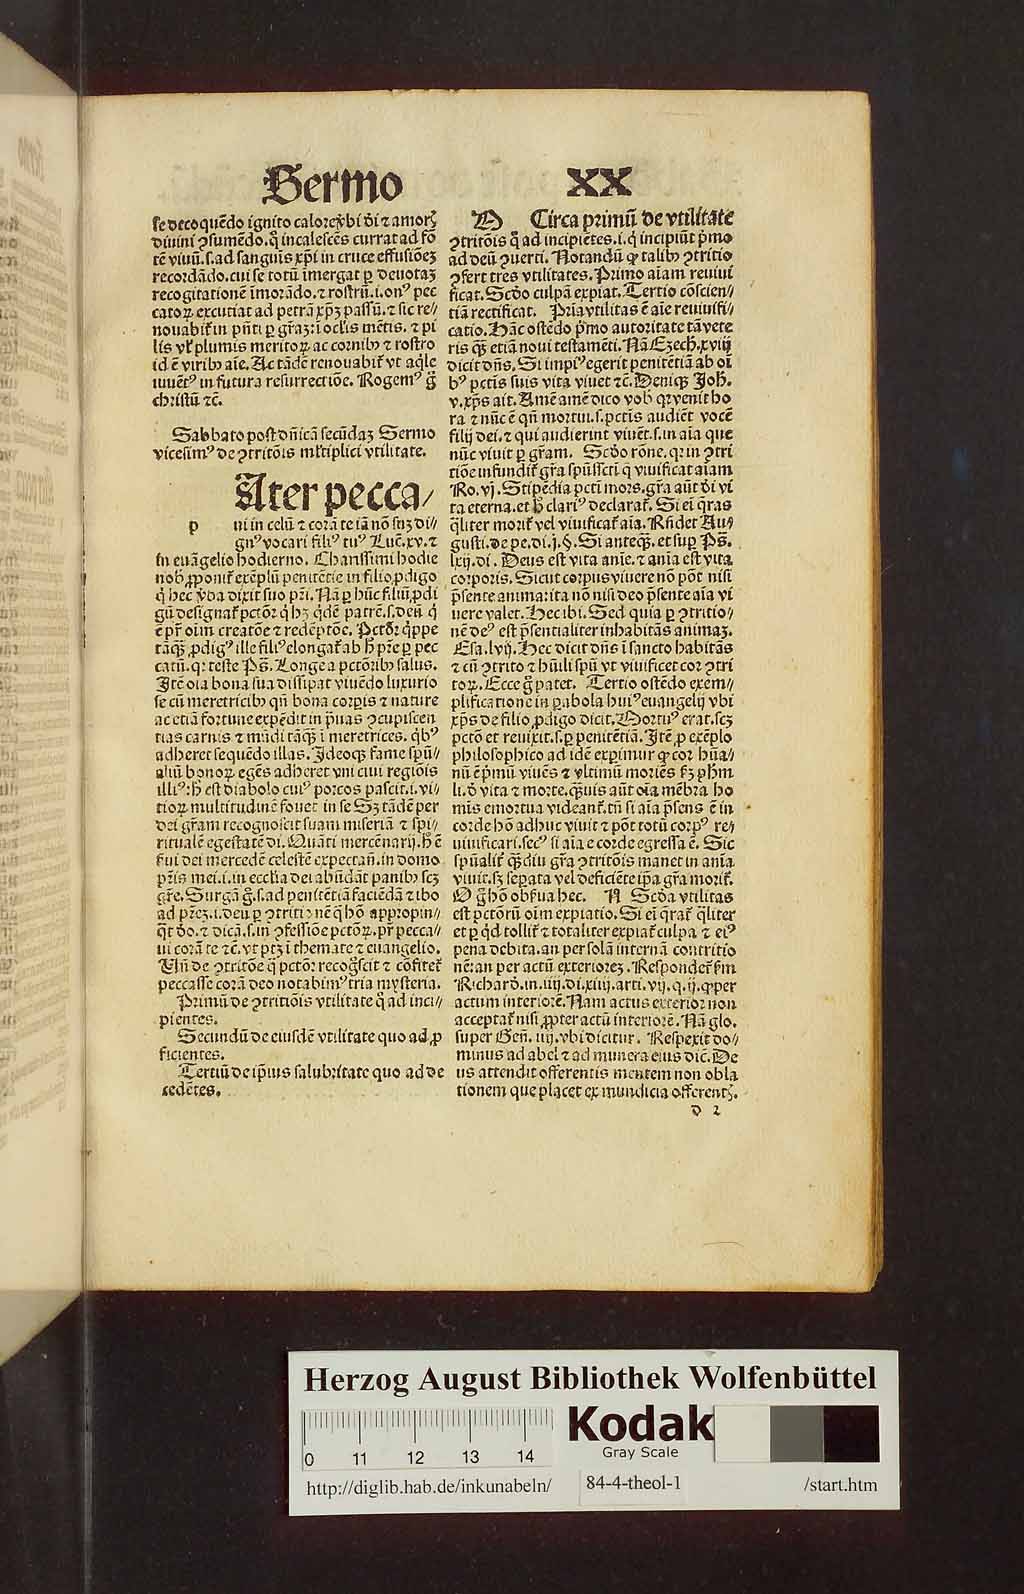 Sermo XX
se decoquēdo ignito calore ꝟbi d̄i ⁊ amorꝭ
diuini ꝯsumēdo. q̇ incalescēs currat ad fō
tē viuū. s. ad sanguis xp̄i in cruce effusiōeꝫ
recordādo. cui se totū īmergat ꝑ deuotaꝫ
recogitationē īmorādo. ⁊ rostrū. i. onꝰ pec
catoꝝ excutiat ad petrā xp̄ꝫ passū. ⁊ sic re//
nouabit᷑ in pn̄ti ꝑ gr̄aꝫ: ī oclis mētis. ⁊ pi
lis vl̓ plumis meritoꝝ ac cornibꝰ ⁊ rostro
id ē viribꝰ aīe. Ac tādē renouabit᷑ vt aq̇le
iuuētꝰ in futura resurrectiōe. Rogemꝰ g̊
christū ⁊c̄.
Sabbato post dn̄icā secūdaꝫ Sermo
vicesimꝰ de ꝯtritōis ml̓tiplici vtilitate.
Ater pecca/
p ui in celū ⁊ corā te iā nō suꝫ di//
gnꝰ vocari filiꝰ tuꝰ Luc̄. xv. ⁊
in euāgelio hodierno. Charissimi hodie
nob̄ ꝓponit᷑ exēplū penitētie in filio ꝓdigo
q̇ hec ꝟba dixit suo pr̄i. Nā ꝑ hūc filiū ꝓdi
gū designat᷑ pctōr q̇ hꝫ q̇dē patrē. s. deū q̇
ē pr̄ oīm creatōe ⁊ redēptōe. Pctōr q̇ppe
tāqꝫ ꝓdigꝰ ille filiꝰ elongat᷑ ab h̄ pr̄e ꝑ pec
catū. qꝛ teste Ps̄. Longe a pctōribꝰ salus.
Itē oīa bona sua dissipat viuēdo luxurio
se cū meretricibꝰ qn̄ bona corꝑis ⁊ nature
ac etiā fortune expēdit in p̄uas ꝯcupiscen
tias carnis ⁊ mūdi tāqꝫ ī meretrices. q̇bꝰ
adheret sequēdo illas. Ideoqꝫ fame spūa//
aliū bonoꝝ egēs adheret vni ciui regiōis
illiꝰ: h̄ est diabolo cuiꝰ porcos pascit. i. vi//
tioꝝ multitudinē fouet in se Sꝫ tādē per
dei gr̄am recognoscit suam miseriā ⁊ spi//
ritualē egestatē di. Quāti mercēnarij. h̄ ē
ẜui dei mercedē celestē expectan̄. in domo
pr̄is mei. i. in ecclīa dei abūdāt panibꝰ scꝫ
gr̄e. Surgā g̊. s. ad penitētiā faciēdā ⁊ ibo
ad pr̄eꝫ. i. deū ꝑ ꝯtritionē q̇ hō appropin//
q̇t deo. ⁊ dicā. s. in ꝯfessiōe pctōꝝ. pr̄ pecca//
ui corā te ⁊c̄. vt ptꝫ ī themate ⁊ euangelio.
Vn̄ de ꝯtritōe q̇ pctōr recog̊scit ⁊ cōfitet᷑
peccasse corā deo notabimꝰ tria mysteria.
Primū de ꝯtritiōis vtilitate q̊ ad inci//
pientes.
Secundū de eiusdē vtilitate quo ad ꝓ
ficientes.
Tertiū de ip̄ius salubritate quo ad de
cedētes.
M Circa primū de vtilitate
ꝯtritōis q̊ ad incipiētes. i. q̇ incipiūt p̄mo
ad deū ꝯuerti. Notandū ꝙ talibꝰ ꝯtritio
ꝯfert tres vtilitates. Primo aīam reuiui
ficat. Scd̄o culpā expiat. Tertio cōscien//
tiā rectificat. Prīa vtilitas ē aīe reuiuifi//
catio. Hāc ostēdo p̄mo autoritate tā vete
ris qꝫ etiā noui testamēti. Nā Ezech̄. xviij
dicit dn̄s. Si impiꝰ egerit penitētiā ab oī
bꝰ pctīs suis vita viuet ⁊c̄. Deniqꝫ Joh̄.
v. xp̄s ait. Amē amē dico vob̄ qꝛ venit ho
ra ⁊ nūc ē qn̄ mortui. s. pctīs audiēt vocē
filij dei. ⁊ qui audierint viuēt. s. in aīa que
nūc viuit ꝑ gr̄am. Scd̄o rōne. qꝛ in ꝯtri
tiōe infundit᷑ gr̄a spūssctī q̄ viuificat aīam
Ro. vj. Stipēdia pctī mors. gr̄a aūt d̄i vi
ta eterna. et h̄ clariꝰ declarat᷑. Si eī q̄ras
q̄liter morit᷑ vel viuificat᷑ aīa. Rn̄det Au//
gusti. de pe. di. j. §. Si anteqꝫ. et sup Ps̄.
lxij. di. Deus est vita anīe. ⁊ anīa est vita
corporis. Sicut corpus viuere nō pōt nisi
p̄sente animata nō nisi deo p̄sente aīa vi
uere valet. Hec ibi. Sed quia ꝑ ꝯtritio//
nē deꝰ est p̄sentialiter inhabitās animaꝫ.
Esa. lvij. Hec dicit dn̄s ī sancto habitās
⁊ cū ꝯtrito ⁊ hūili spū vt viuificet cor ꝯtri
toꝝ. Ecce g̊ patet. Tertio ostēdo exem//
plificatione in ꝑabola huiꝰ euangelij vbi
xp̄s de filio ꝓdigo dicit. Mortuꝰ erat. scꝫ
pctō et reuixit. s. ꝑ penitētiā. Itē ꝓ exēplo
philosophico ad idē exp̄imur ꝙ cor hūa//
nū ē p̄mū viuēs ⁊ vltimū moriēs ẜꝫ ph̄m
li. d̓ vita ⁊ morte. qꝫuis aūt oīa mēbra ho
mīs emortua videant᷑. tn̄ si aīa p̄sens ē in
corde hō adhuc viuit ⁊ pōt totū corpꝰ re//
uiuificari. secꝰ si aīa e corde egressa ē. Sic
spūalit᷑ qꝫdiu gr̄a ꝯtritōis manet in anīa
viuit. sꝫ seꝑata vel deficiēte ip̄a gr̄a morit᷑.
O g̊ hō obẜua hec. N Scd̄a vtilitas
est pctōrū oīm expiatio. Si eī q̄rat᷑ q̄liter
et ꝑ qd̄ tollit᷑ ⁊ totaliter expiat᷑ culpa ⁊ eiꝰ
pena debita. an per solā internā contritio
nē: an per actū exterioreꝫ. Respondet᷑ ẜm
Richard̄. in. iiij. di. xiiij. arti. vij. q. ij. ꝙ per
actum interiorē. Nam actus exterior non
acceptat᷑ nisi ꝓpter actū interiorē. Nā glo.
super Gen̄. iiij. vbi dicitur. Respexit do//
minus ad abel ⁊ ad munera eius dic̄. De
us attendit offerentis mentem non obla
tionem que placet ex mundicia offerentꝭ.
d 2
Herzog August Bibliothek Wolfenbüttel
0 11 12 13 14
Kodak
Gray Scale
http://diglib.hab.de/inkunabeln/ 84-4-theol-1 /start.htm